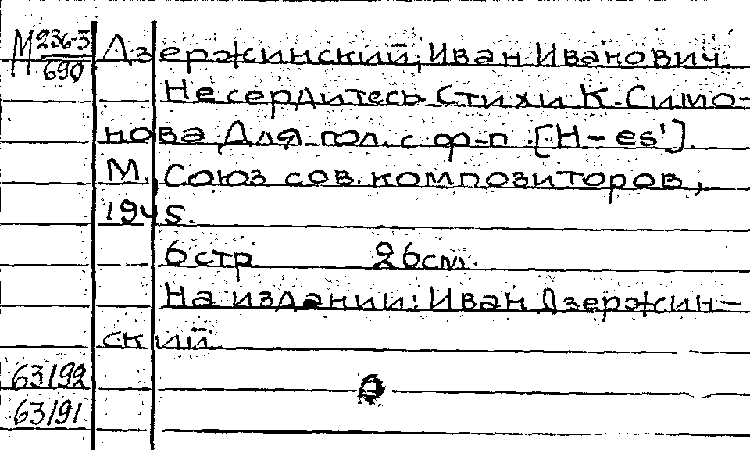 М 236-3 Дзержинский, Иван Иванович.
690
Не сердитесь Стихи К. Симо-
нова Для гол. с ф-п. [H-es'].
М., Союз сов. композиторов,
1945.
6 стр 26 см.
На издании: Иван Дзержин-
ский
63192
63191